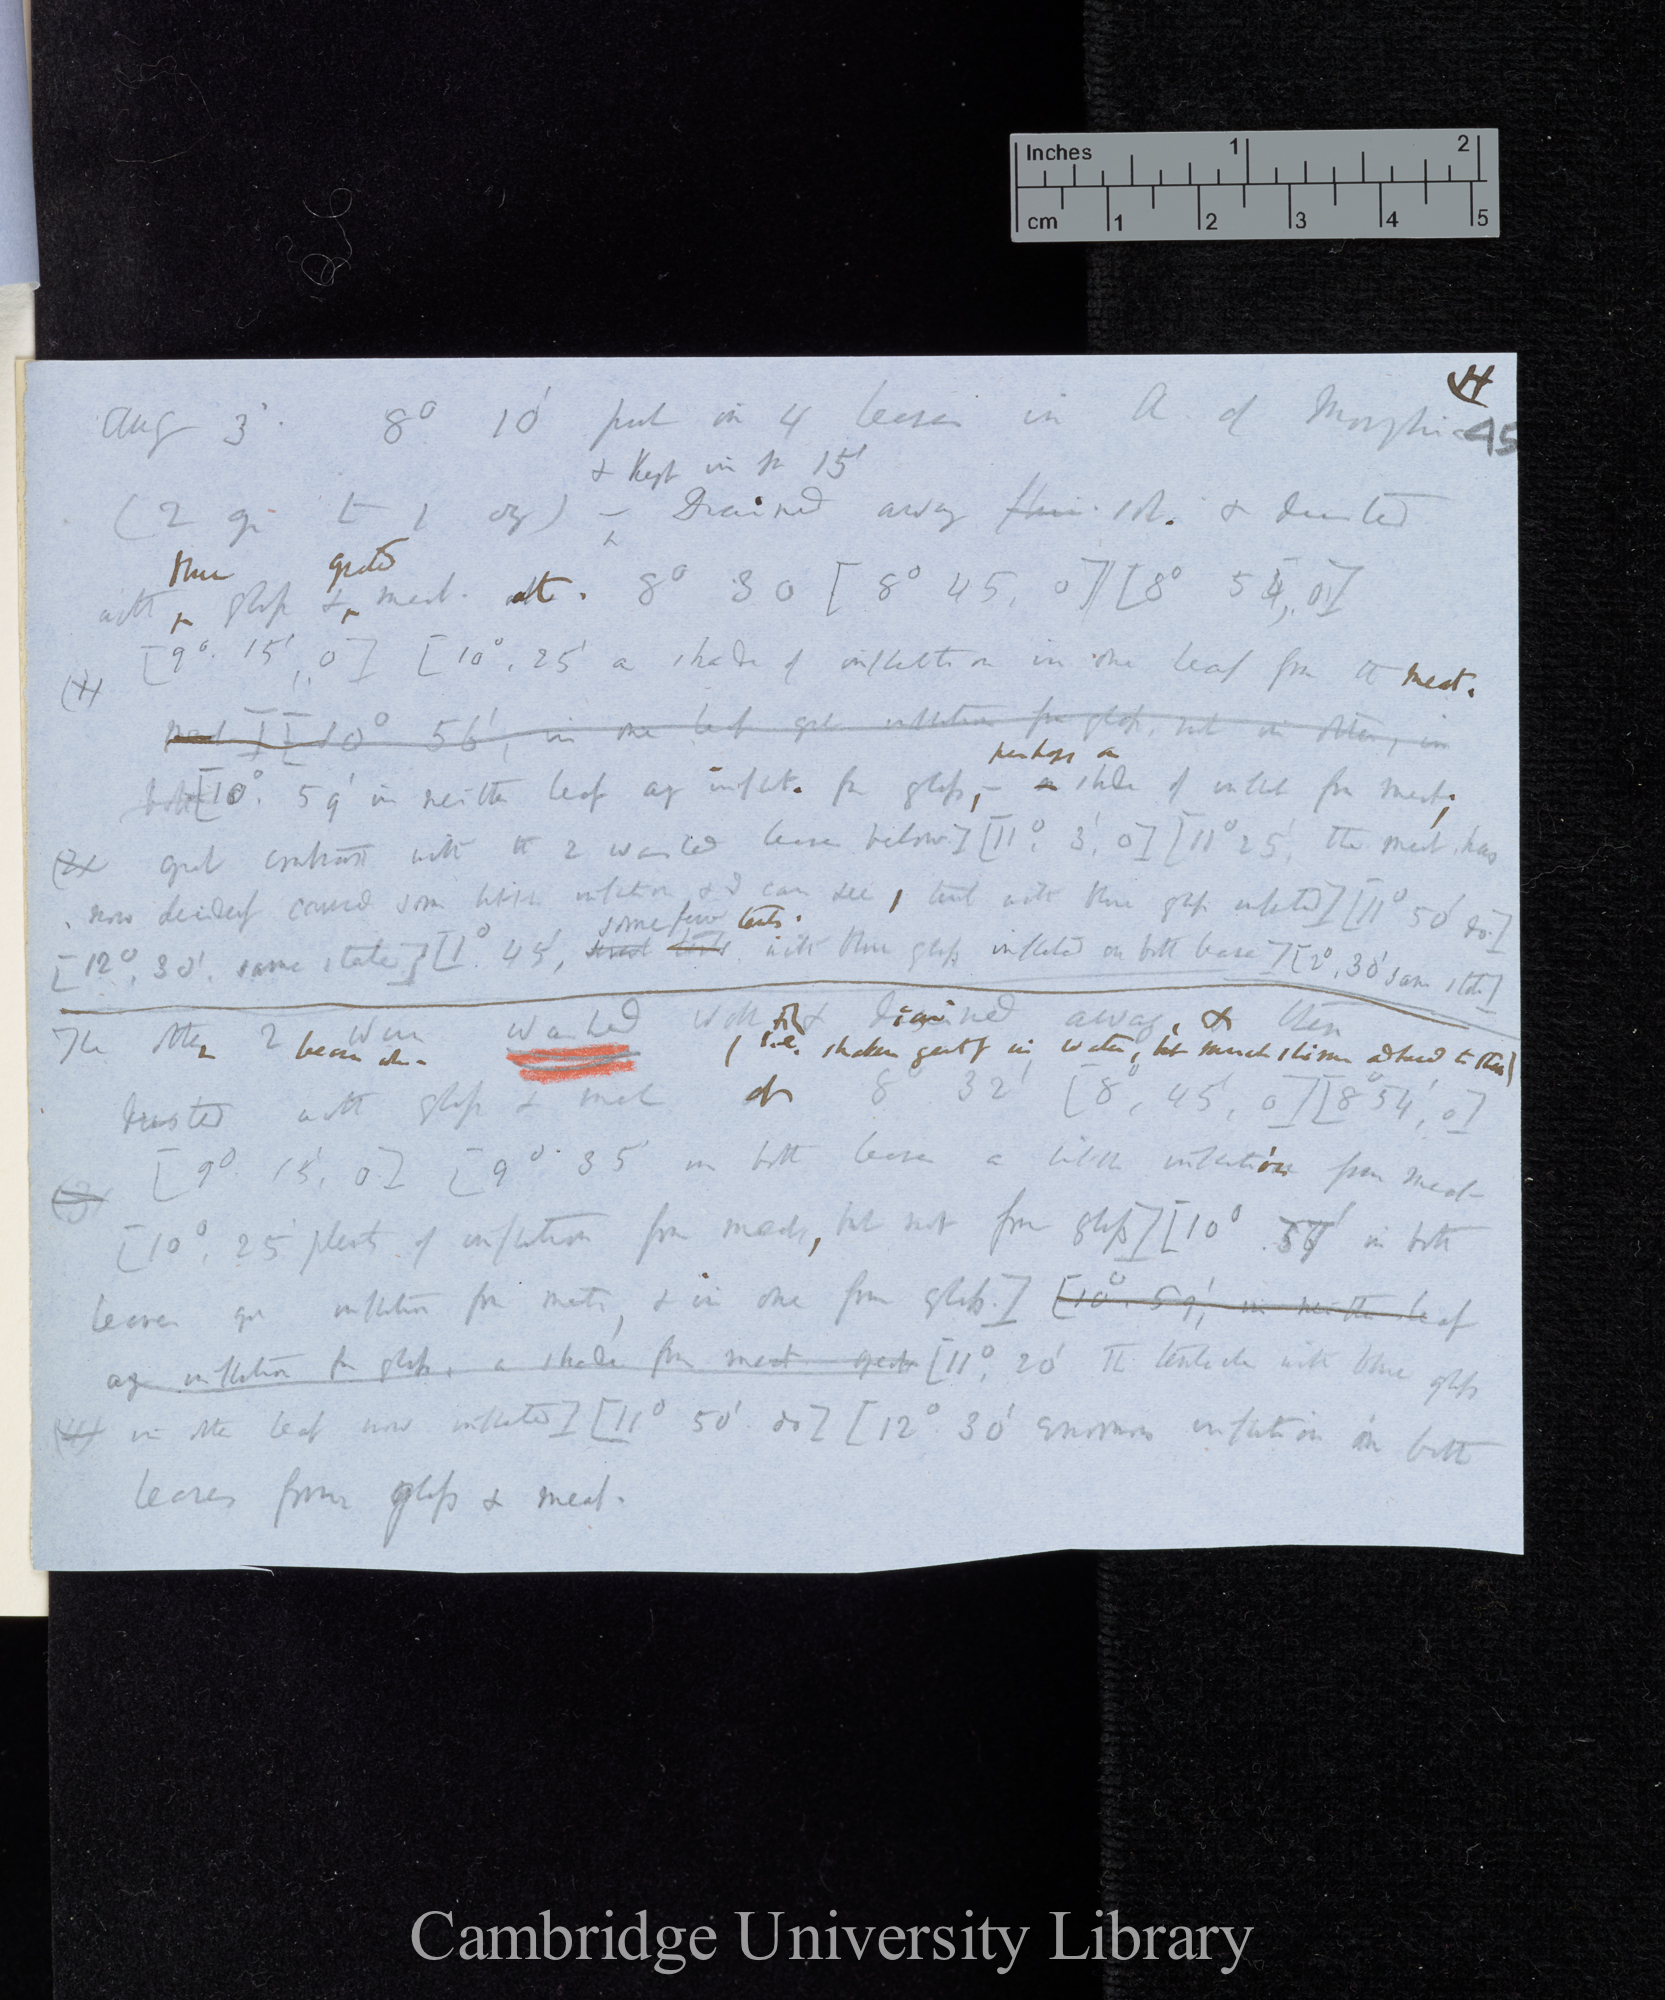 Inches 1 2
cm 1 2 3 4 5
H
45
Aug 3. 8° 10' put in 4 leaves in A. of Morphia
& Kept in for 15'
(2 gr to 1 oz) – Drained away sol. & dusted
blue grated
with glass & meat. at. 8° 30 [8° 45, 0] [8° 54, 0]
[9°. 15', 0] [10°. 25' a shade of inflection in one leaf from the meat.
(1)
meat ] [10° 56', in one leaf great inflection from glass, but in other, in
both [10°. 59' in neither leaf any inflect. from glass, – a shade of inflect from meat;
perhaps a
(2) great contrast with the 2 washed leaves below] [11°. 3', 0] [11° 25', the meat has
now decidedly caused some little inflection, & I can see, tent with blue glass inflected] [11° 50' do]
some few tents.
[12°. 30'. same state] [1°. 45', with blue glass inflected on both leaves] [2°, 30' same state]
The other 2 were washed & drained away, & then
leaves
(i.e. shaken gently in water, but much slime adhered to them)
dusted with glass & meat at 8° 32' [8°, 45', 0] [8° 54', 0]
[9° 15', 0] [9°. 35' in both leaves a little inflection from meat
(3)
[10°. 25' plenty of inflection from meat, but not from glass] [10° 56' in both
leaves great inflection from meat, & in one from glass.] [10°. 59', in neither leaf
any inflection from glass, a shade from meat. great [11°. 20' The tentacles with blue glass
(4) in other leaf now inflected] [11° 50'. do] [12°. 30' enormous inflection in both
leaves from glass & meat.
Cambridge University Library